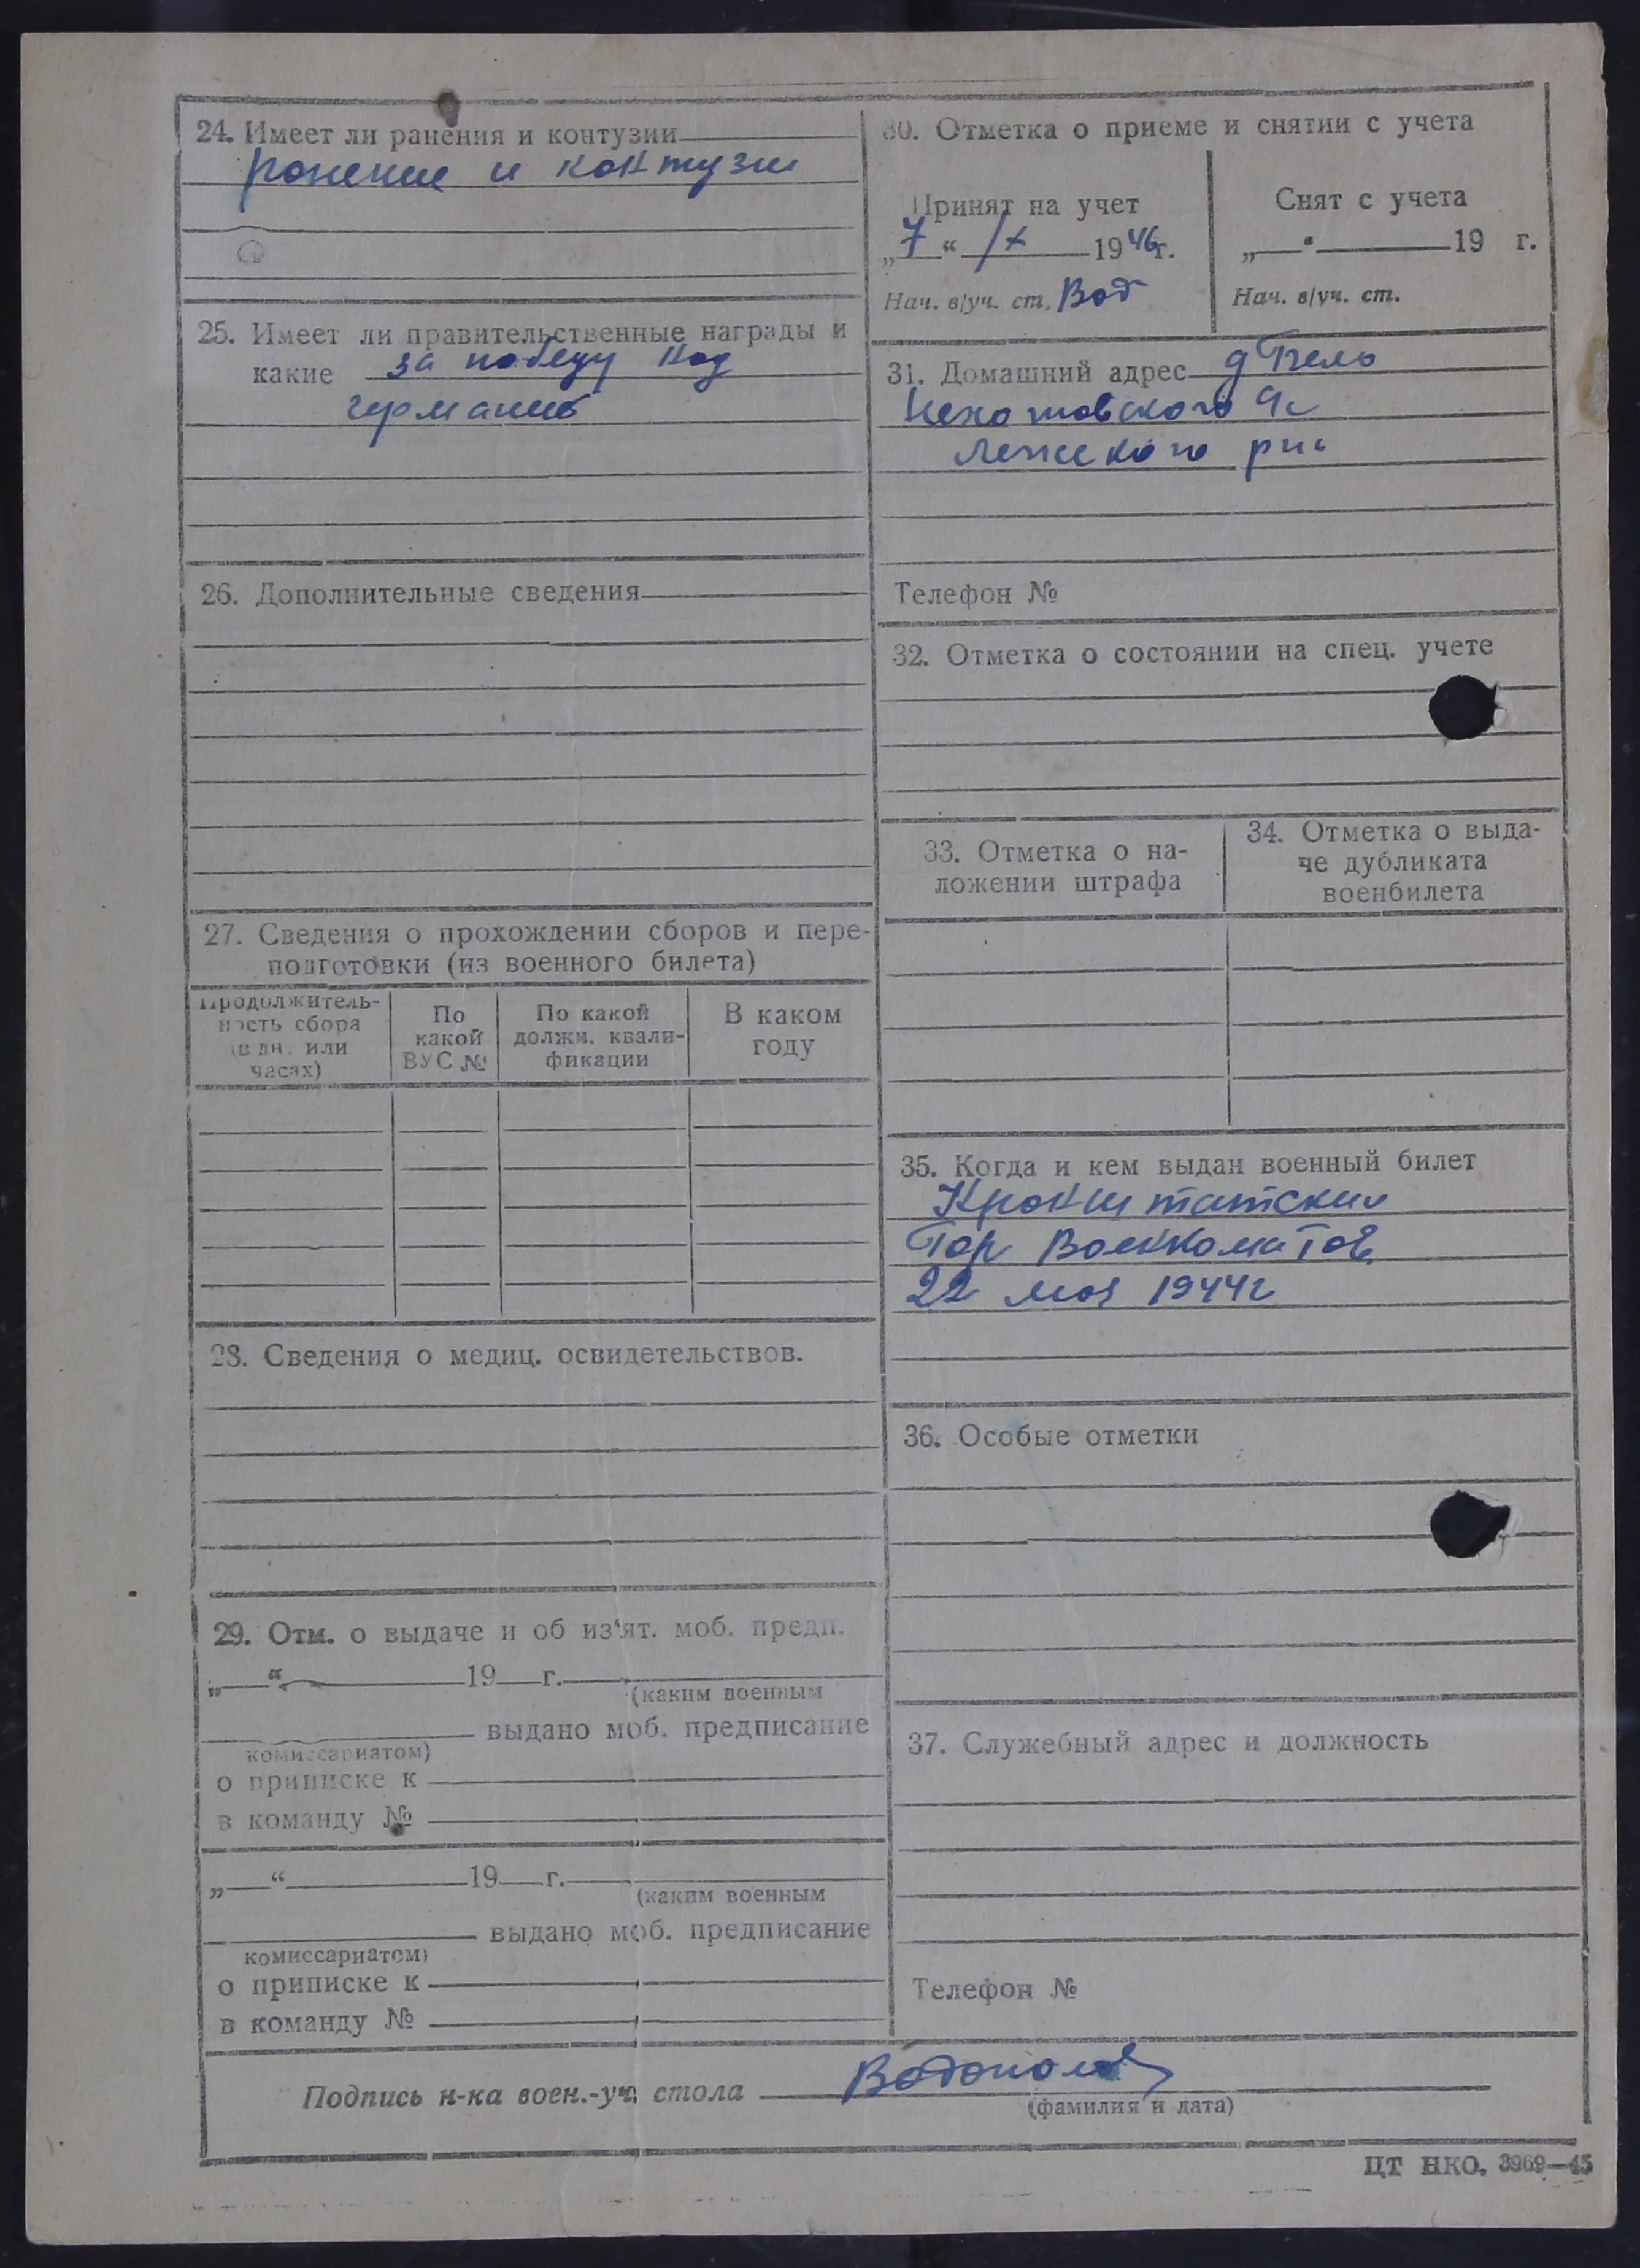 24. Имеет ли ранения и контузии
ранение и контузи
25. Имеет ли правительственные награды и
какие за победу над
германию
26. Дополнительные сведения
27. Сведения о прохождении сборов и пере-
подготовки (из военного билета)
Продолжитель-
ность сбора
(в дн. или
часах)
По
какой
ВУС №
По какой
должн. квали-
фикации
В каком
году
28. Сведения о медиц. освидетельствов.
29. Отм. о выдаче и об из'ят. моб. предп.
„ “ 19 г.
(каким военным
выдано моб. предписание
комиссариатом)
о приписке к
в команду №
„ “ 19 г.
(каким военным
выдано моб. предписание
комиссариатом)
о приписке к
в команду №
30. Отметка о приеме и снятии с учета
Принят на учет
„7“ IX 1946г.
Нач. в/уч. ст. Вод
Снят с учета
„ “ 19 г.
Нач. в/уч. ст.
31. Домашний адрес д
с/с
Лежского р на
Телефон №
32. Отметка о состоянии на спец. учете
33. Отметка о на-
ложении штрафа
34. Отметка о выда-
че дубликата
военбилета
35. Когда и кем выдан военный билет
Кронштатским
Гор Военкоматов
22 мая 1944г
36. Особые отметки
37. Служебный адрес и должность
Телефон №
Подпись н-ка воен.-уч. стола
(фамилия и дата)
ЦТ НКО. 3969—45